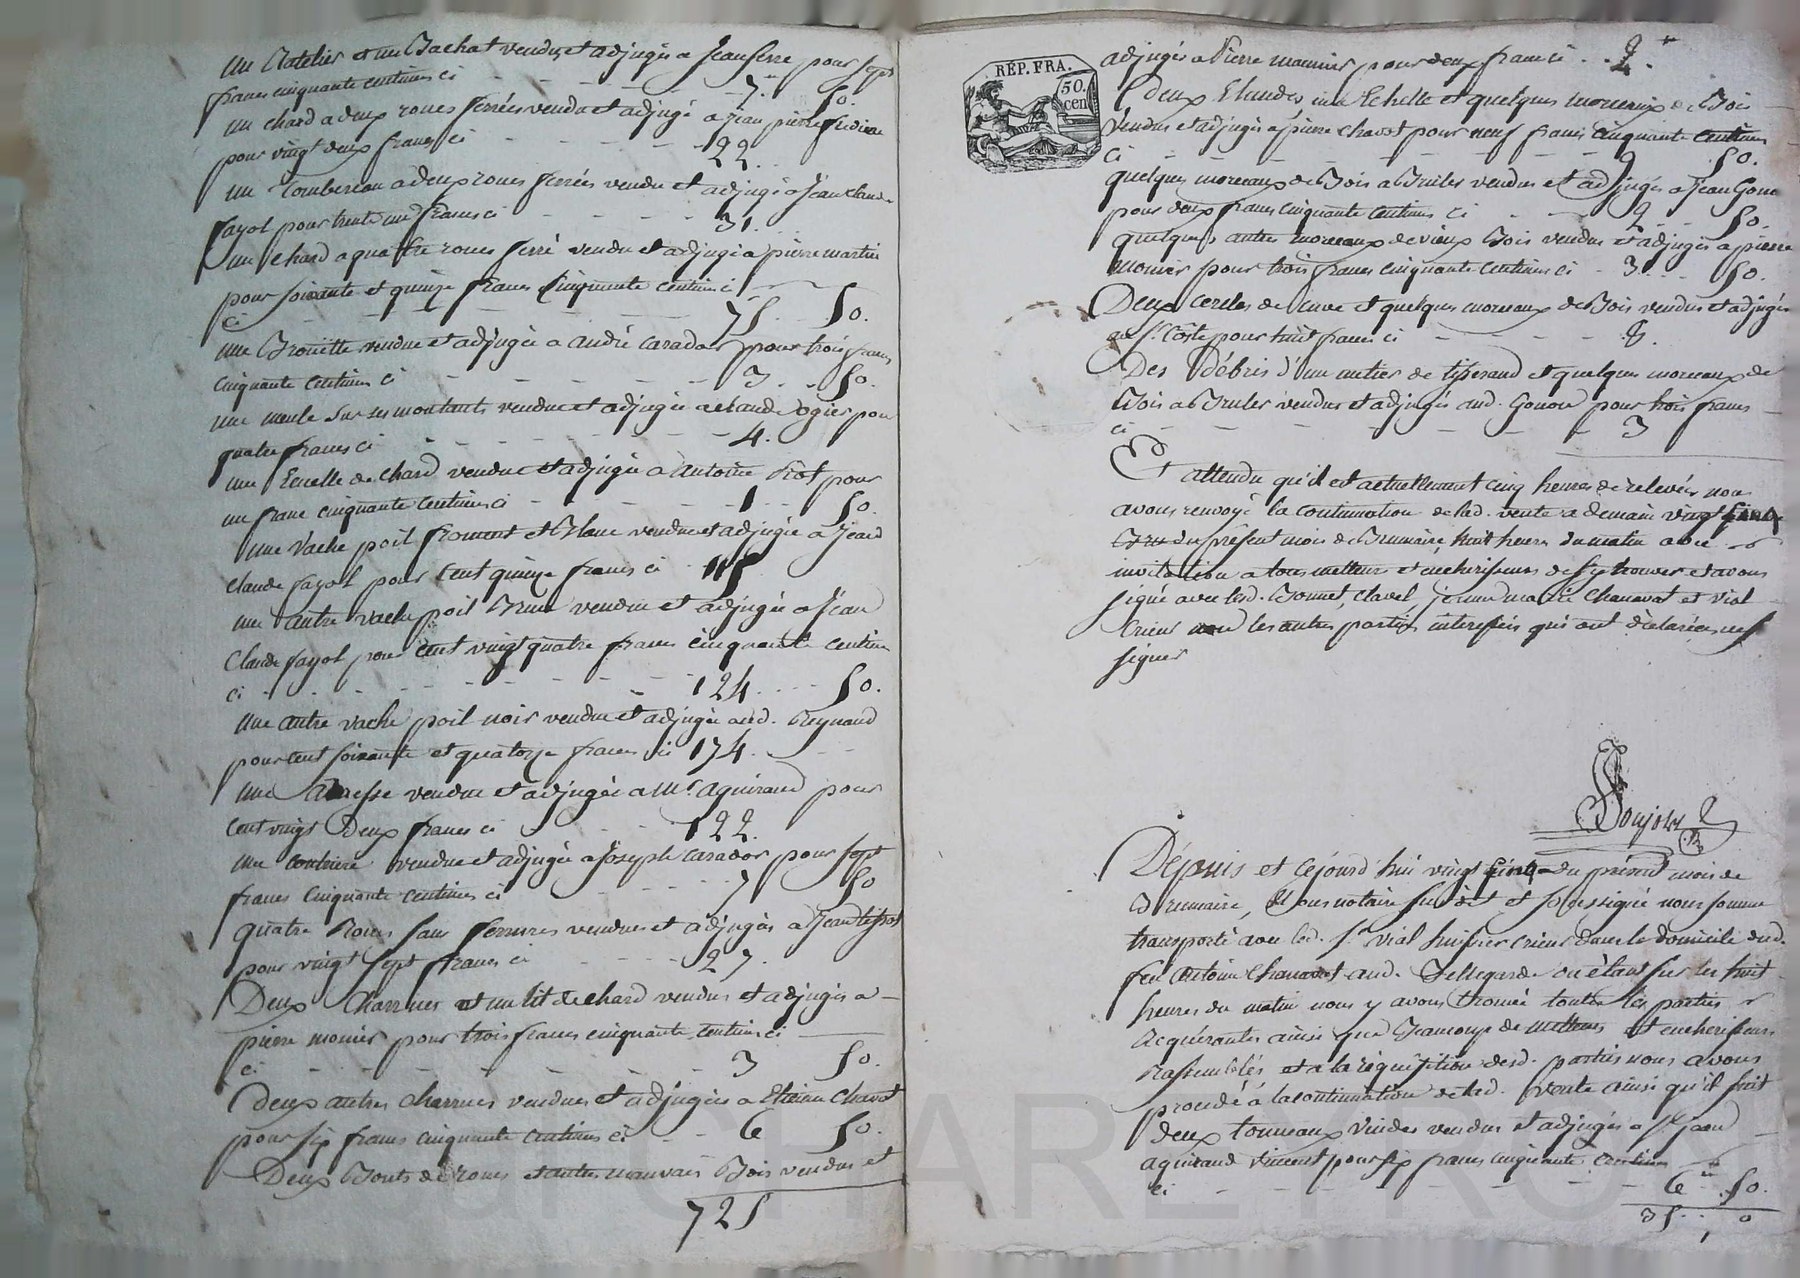 Un Ratelier et un Bachat vendus et adjugés a Jean Serre pour sept
francs cinquante centimes ci - - - 7. 50.
Un chard a deux roues ferrées vendu et adjugé a Jean pierre
pour vingt deux francs ci - - - 22.
un Tombereau a deux roues ferrées vendu et adjugé a Jean Claude
fayol pour trente un francs ci - - - 31.
un chard a quatre roues ferré vendu et adjugé a pierre martin
pour soixante et quinze francs cinquante centimes ci
ci - - - 75. 50.
une Brouette vendue et adjugée a andré Carador pour trois francs
cinquante centimes ci - - - 3. 50.
une meule sur ses montants vendue et adjugée a Claude ogier pour
quatre francs ci - - - 4.
une Echelle de chard vendue et adjugée a antoine Piot pour
un franc cinquante centimes ci - - - 1 50.
une Vache poil froment et Blanc vendue et adjugée a Jean
Claude fayol pour Cent quinze francs ci 115
une autre vache poil Brun vendue et adjugée a Jean
Claude fayol pour Cent vingt quatre francs cinquante centimes
ci - - - 124. 50.
une autre vache poil noir vendue et adjugée aud. Reynaud
pour cent soixante et quatorze francs ci 174.
une anesse vendue et adjugée a Mr. aguiraud pour
Cent vingt Deux francs ci 122.
une vendue et adjugée a Joseph Carador pour sept
francs Cinquante centimes ci - - - 7 50
quatre Roues sans ferrures vendues et adjugées a Jean
pour vingt sept francs ci - - - 27.
Deux Charrues et un lit de chard vendus et adjugés a
pierre monier pour trois francs cinquante centimes ci
ci - - - 3 50.
Deux autres charrues vendues et adjugées a Etienne Chavot
pour six francs cinquante centimes ci - - 6 50.
Deux Bouts de roues et autres mauvais Bois vendus et
725
adjugés a Pierre mounier pour deux francs ci . . 2.
RÉP. FRA.
50.
cen
Deux une Echelle et quelques morceaux de Bois
vendus et adjugés a pierre chavot pour neuf francs cinquante centimes
ci - - - 9 50.
quelques morceaux de Bois a Bruler vendus et adjugés a Jean Gonon
pour deux francs cinquante centimes ci - - 2 50.
quelques autres morceaux de vieux Bois vendus et adjugés a pierre
monier pour trois francs cinquante centimes ci - 3. 50.
Deux cercles de Cuve et quelques morceaux de Bois vendus et adjugés
au Sr. Coste pour huit francs ci - - - 8.
Des Débris d'un metier de tisserand et quelques morceaux de
Bois a Bruler vendus et adjugés aud. Gonon pour trois francs
ci - - - 3
Et attendu qu'il est actuellement cinq heures de relevée nous
avons renvoyé la continuation de lad. vente a demain vingt cinq
du présent mois de Brumaire, huit heures du matin avec
invitation a tous metteurs et encherisseurs de s'y trouver et avons
signé avec led. Bonnet, Clavel, Chanavat et Vial
Crieur non les autres parties interessées qui ont déclaré ne sçavoir
signer
Depuis et cejourd'hui vingt cinq du présent mois de
Brumaire, Nous notaire susdit et soussigné nous sommes
transporté avec led. Sr. Vial huissier crieur dans le domicile dud.
feu Antoine Chanavat aud. Bellegarde ou étant sur les huit
heures du matin nous y avons trouvé toutes les parties
Requérantes ainsi que Beaucoup de metteurs et encherisseurs
Rassemblés et a la requisition desd. parties nous avons
procédé à la continuation de lad. Vente ainsi qu'il suit
Deux tonneaux Vuides vendus et adjugés a Sr. Jean
aguiraud Vincent pour six francs cinquante centimes
ci - - - 6 50.
35. 0